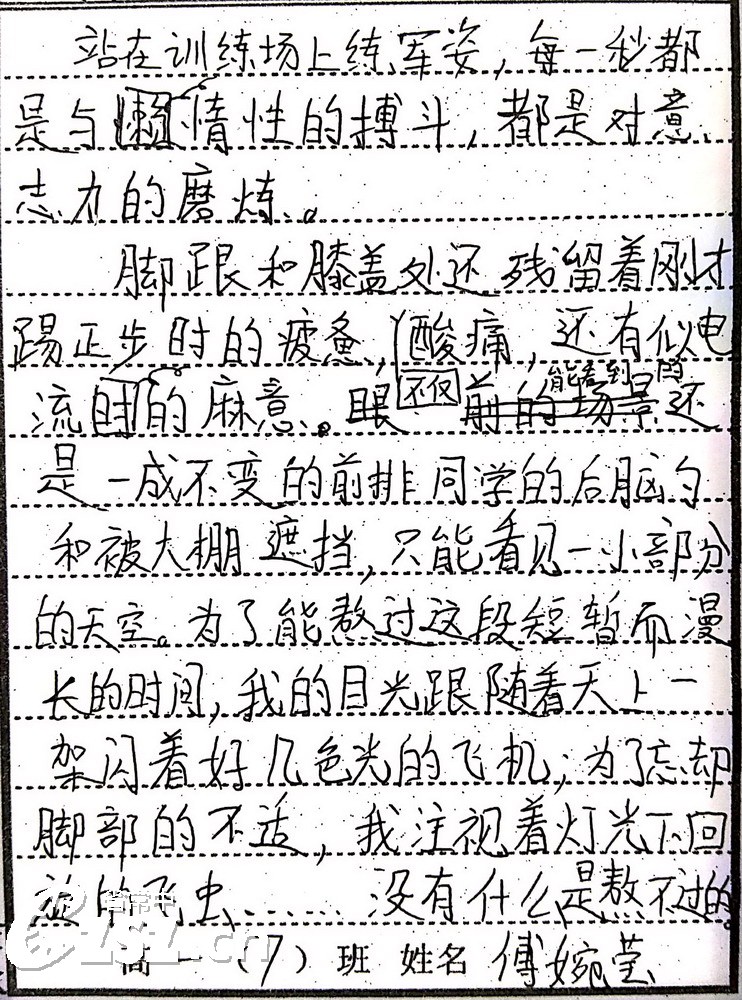 站在训练场上练军姿，每一秒都
是与懒惰性的搏斗，都是对意
志力的磨炼。
脚跟和膝盖处还残留着刚才
踢正步时的疲惫，酸痛，还有似电
流时的麻意。眼不仅前的场景能看到的还
是一成不变的前排同学的后脑勺
和被大棚遮挡，只能看见一小部分
的天空。为了能熬过这段短暂而漫
长的时间，我的目光跟随着天上一
架闪着好几色光的飞机；为了忘却
脚部的不适，我注视着灯光下回
旋的飞虫……没有什么是熬不过的
高一（7）班 姓名 傅婉莹